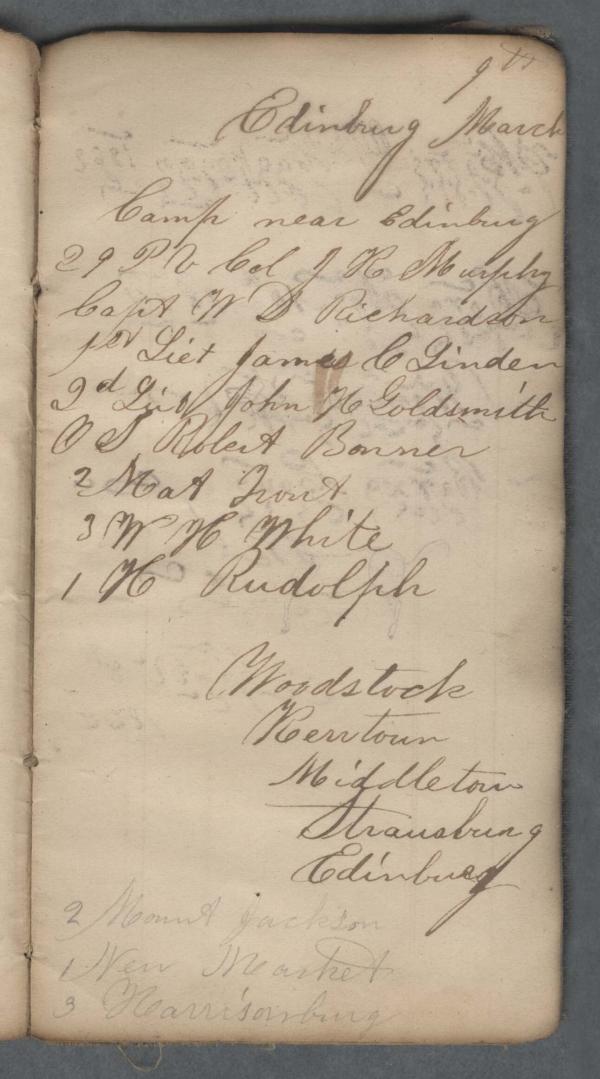 9th
Edinburg March
Camp near Edinburg
29 P V Col J K Murphy
Capt W D Richardson
1st Liet James C Linden
2d Liet John H Goldsmith
O S Robert Bonner
2 Mat Trout
3 W H White
1 H Rudolph
Woodstock
Kerrtoun
Middletown
Strausburg
Edinburg
2 Mount Jackson
1 New Market
3 Harrisonburg